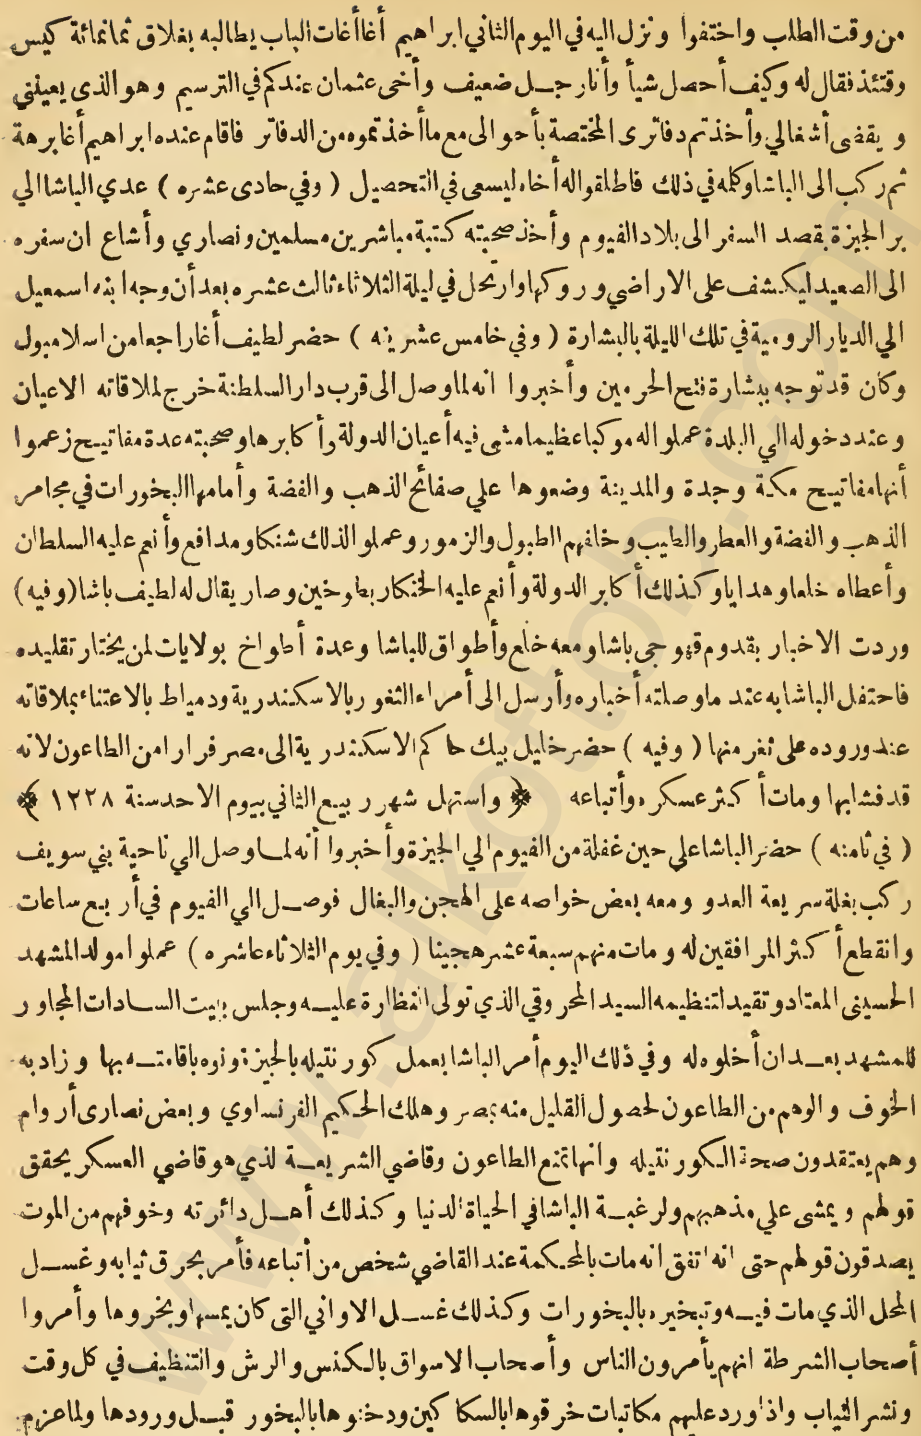 من وقت الطلب واختفوا ونزل اليه في اليوم الثاني ابراهيم أغا أغات الباب يطالبه بغلاق ثمانمائة كيس
وقتئذ فقال له وكيف أحصل شيأ وأنا رجل ضعيف وأخى عثمان عندكم في الترسيم وهو الذى يعينني
ويقضى أشغالي وأخذتم دفاترى المختصة بأحوالى مع ما أخذتموه من الدفاتر فاقام عنده ابراهيم أغا برهة
ثم ركب الى الباشا وكله في ذلك فاطلقوا له أخاه ليسعى في التحصيل ( وفي حادى عشره ) عدي الباشا الي
بر الجيزة بقصد السفر الى بلاد الفيوم وأخذ صحبته كتبة مباشرين مسلمين ونصاري وأشاع ان سفره
الى الصعيد ليكشف على الاراضي وروكها وارتحل في ليلة الثلاثاء ثالث عشره بعد أن وجه ابنه اسمعيل
الي الديار الرومية في تلك الليلة بالبشارة ( وفي خامس عشرينه ) حضر لطيف أغا راجعا من اسلامبول
وكان قد توجه ببشارة فتح الحرمين وأخبروا انه لما وصل الى قرب دار السلطنة خرج لملاقاته الاعيان
وعند دخوله الي البلدة عملوا له موكبا عظيما مشى فيه أعيان الدولة وأكابرها وصحبته عدة مفاتيح زعموا
أنها مفاتيح مكة وجدة والمدينة وضعوها علي صفائح الذهب والفضة وأمامها البخورات في مجامر
الذهب والفضة والعطر والطيب وخلفهم الطبول والزمور وعملوا لذلك شنكا ومدافع وأنعم عليه السلطان
وأعطاه خلعا وهدايا وكذلك أكابر الدولة وأنعم عليه الخنكار بطوخين وصار يقال له لطيف باشا (وفيه)
وردت الاخبار بقدوم قهوجى باشا ومعه خلع وأطواق للباشا وعدة أطواخ بولايات لمن يختار تقليده
فاحتفل الباشا به عند ما وصلته أخباره وأرسل الى أمراء الثغور بالاسكندرية ودمياط بالاعتناء بملاقاته
عند وروده على ثغر منها ( وفيه ) حضر خليل بيك حاكم الاسكندرية الى مصر فرارا من الطاعون لانه
قد فشا بها ومات أكثر عسكره وأتباعه ﴿ واستهل شهر ربيع الثاني بيوم الاحد سنة ١٢٢٨ ﴾
( في ثامنه ) حضر الباشا علي حين غفلة من الفيوم الي الجيزة وأخبروا أنه لما وصل الي ناحية بني سويف
ركب بغلة سريعة العدو ومعه بعض خواصه على الهجن والبغال فوصل الي الفيوم في أربع ساعات
وانقطع أكثر المرافقين له ومات منهم سبعة عشر هجينا ( وفي يوم الثلاثاء عاشره ) عملوا مولد المشهد
الحسيني المعتاد وتقيد لتنظيمه السيد المحروقي الذي تولى النظارة عليه وجلس ببيت السادات المجاور
للمشهد بعد ان أخلوه له وفي ذلك اليوم أمر الباشا بعمل كورنتيله بالجيزة ونوه باقامته بها وزاد به
الخوف والوهم من الطاعون لحصول القليل منه بمصر وهلك الحكيم الفرنساوي وبعض نصارى أروام
وهم يعتقدون صحة الكورنتيله وانها تمنع الطاعون وقاضي الشريعة لذي هو قاضي العسكر يحقق
قولهم ويمشى علي مذهبهم ولرغبة الباشا في الحياة الدنيا وكذلك أهل دائرته وخوفهم من الموت
يصدقون قولهم حتى انه اتفق انه مات بالمحكمة عند القاضي شخص من أتباعه فأمر بحرق ثيابه وغسل
المحل الذي مات فيه وتبخيره بالبخورات وكذلك غسل الاواني التى كان يمسها وبخروها وأمروا
أصحاب الشرطة انهم يأمرون الناس وأصحاب الاسواق بالكنس والرش والتنظيف في كل وقت
ونشر الثياب واذا ورد عليهم مكاتبات خرقوها بالسكاكين ودخنوها بالبخور قبل ورودها ولما عزم